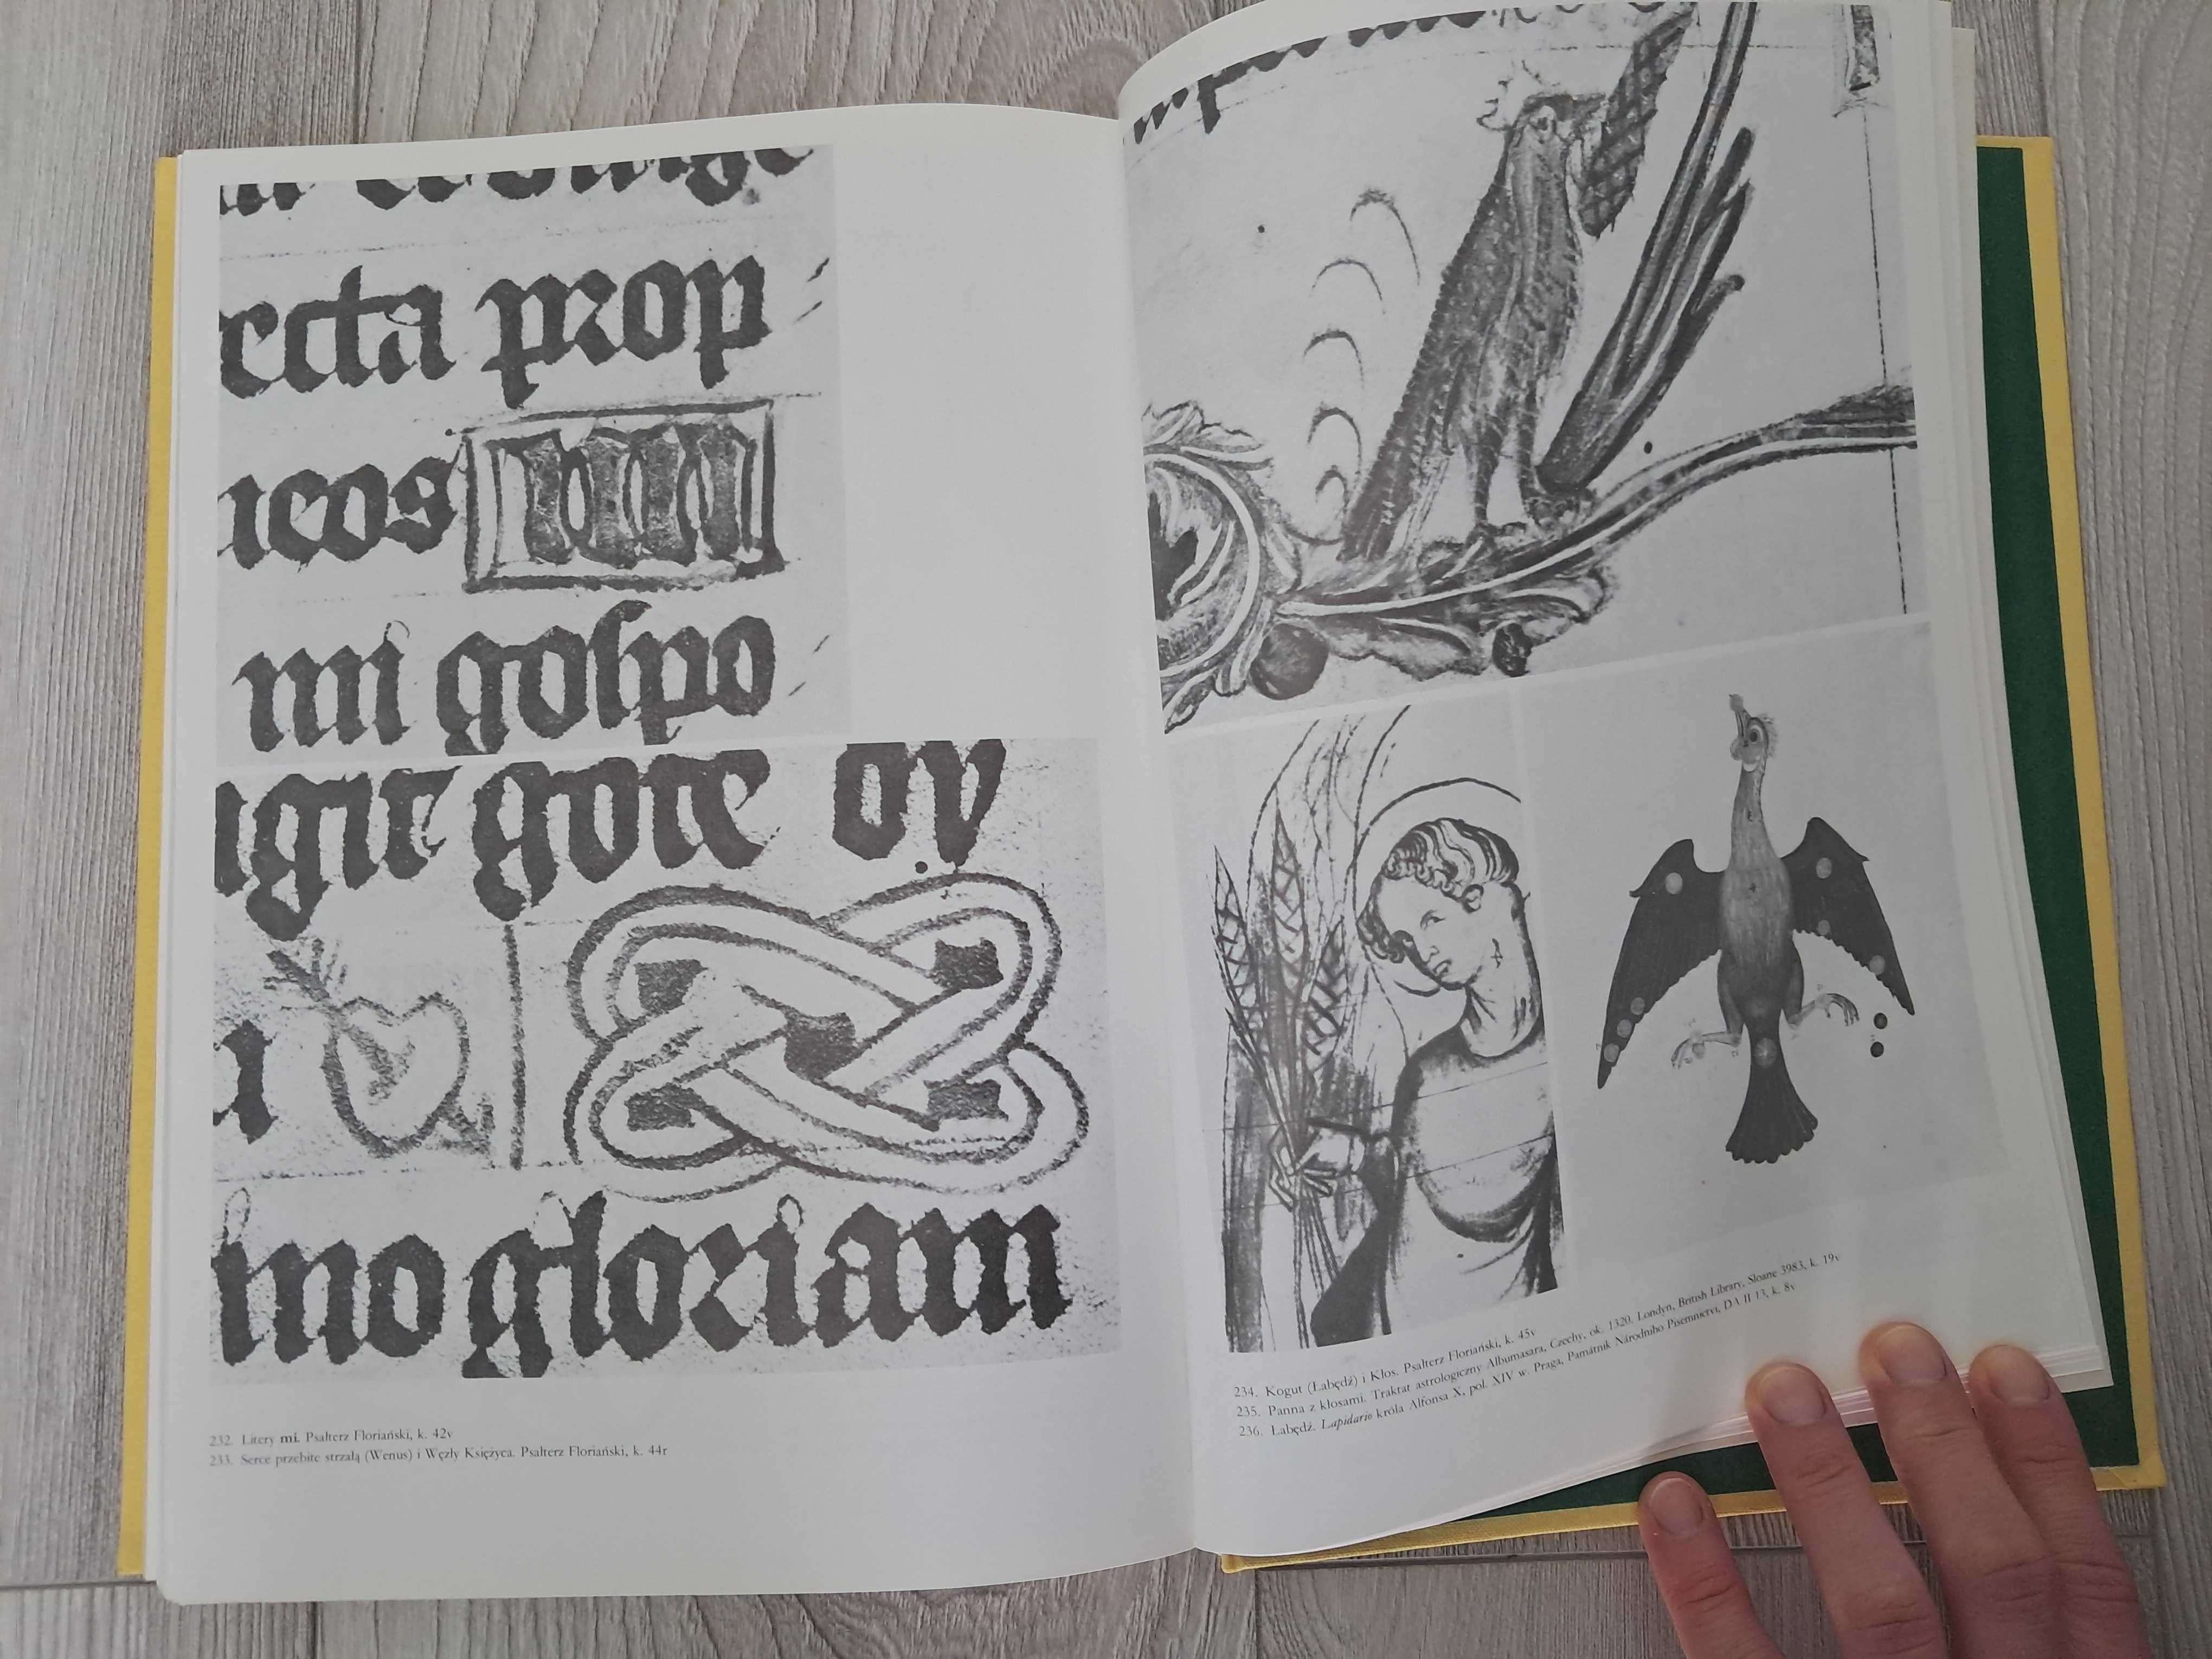 ecta prop
ucos mi
mi gospo
ugit gote ov
a
mo gloriam
232. Litery mi. Psałterz Floriański, k. 42v
233. Serce przebite strzałą (Wenus) i Węzły Księżyca. Psałterz Floriański, k. 44r
234. Kogut (Łabędź) i Kłos. Psałterz Floriański, k. 45v
235. Panna z kłosami. Traktat astrologiczny Albumasara, Czechy, ok. 1320. Londyn, British Library, Sloane 3983, k. 19v
236. Łabędź. Lapidario króla Alfonsa X, poł. XIV w. Praga, Památnik Národniho Pisemnictvi, DA II 13, k. 8v